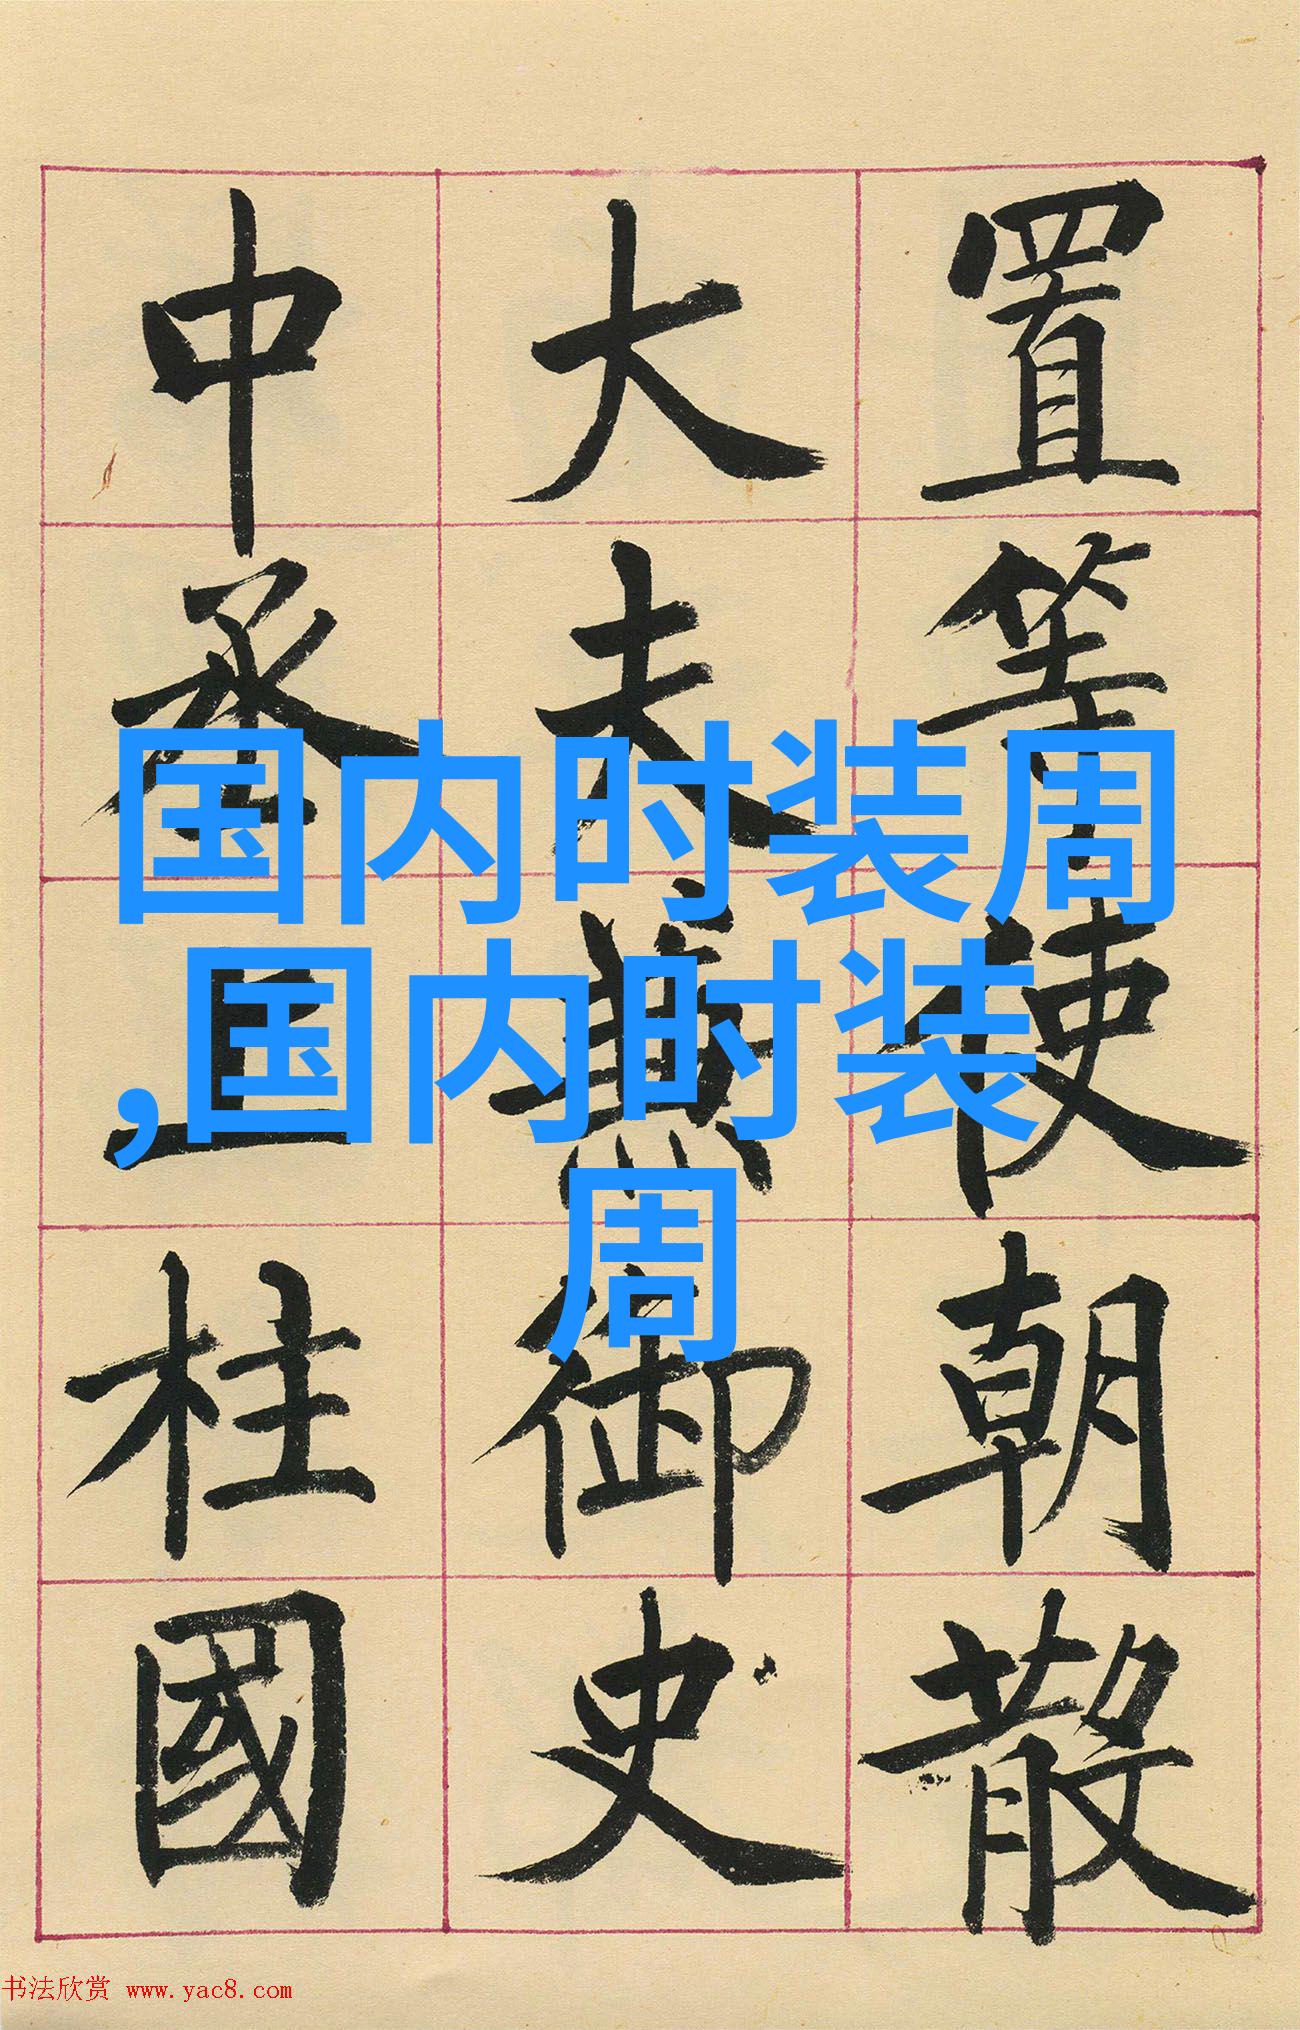 置等使朝散
大夫兼御史
中丞上柱國
国内时装周
,国内时装
周
书法欣赏 www.yac8.com